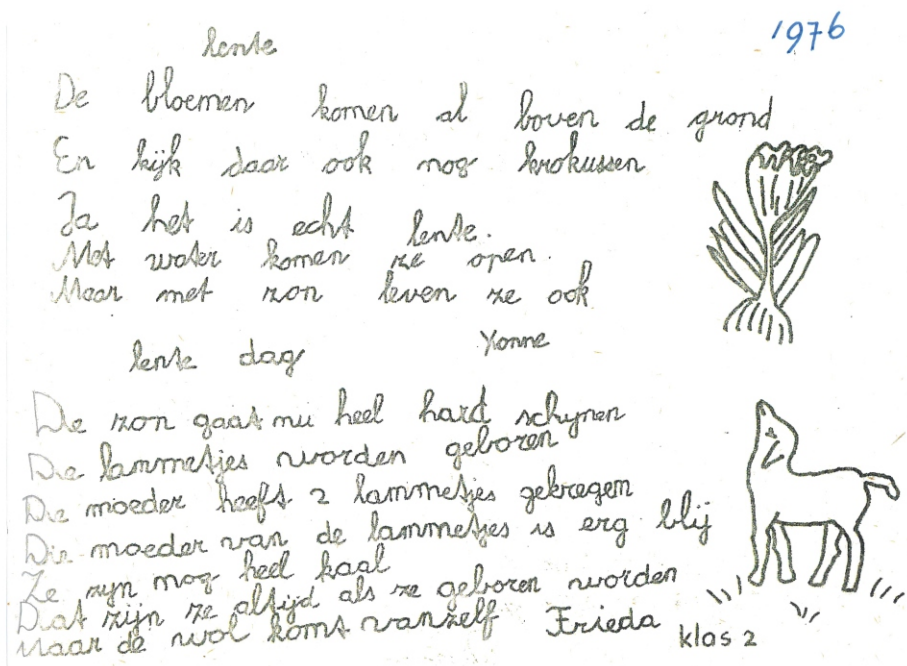 1976
lente
De bloemen komen al boven de grond
En kijk daar ook nog krokussen
Ja het is echt lente.
Met water komen ze open.
Maar met zon leven ze ook
Yvonne
lente dag
De zon gaat nu heel hard schijnen
De lammetjes worden geboren
De moeder heeft 2 lammetjes gekregen
Die moeder van de lammetjes is erg blij
Ze zijn nog heel kaal
Dat zijn ze altijd als ze geboren worden
Maar de wol komt vanzelf Frieda
klas 2